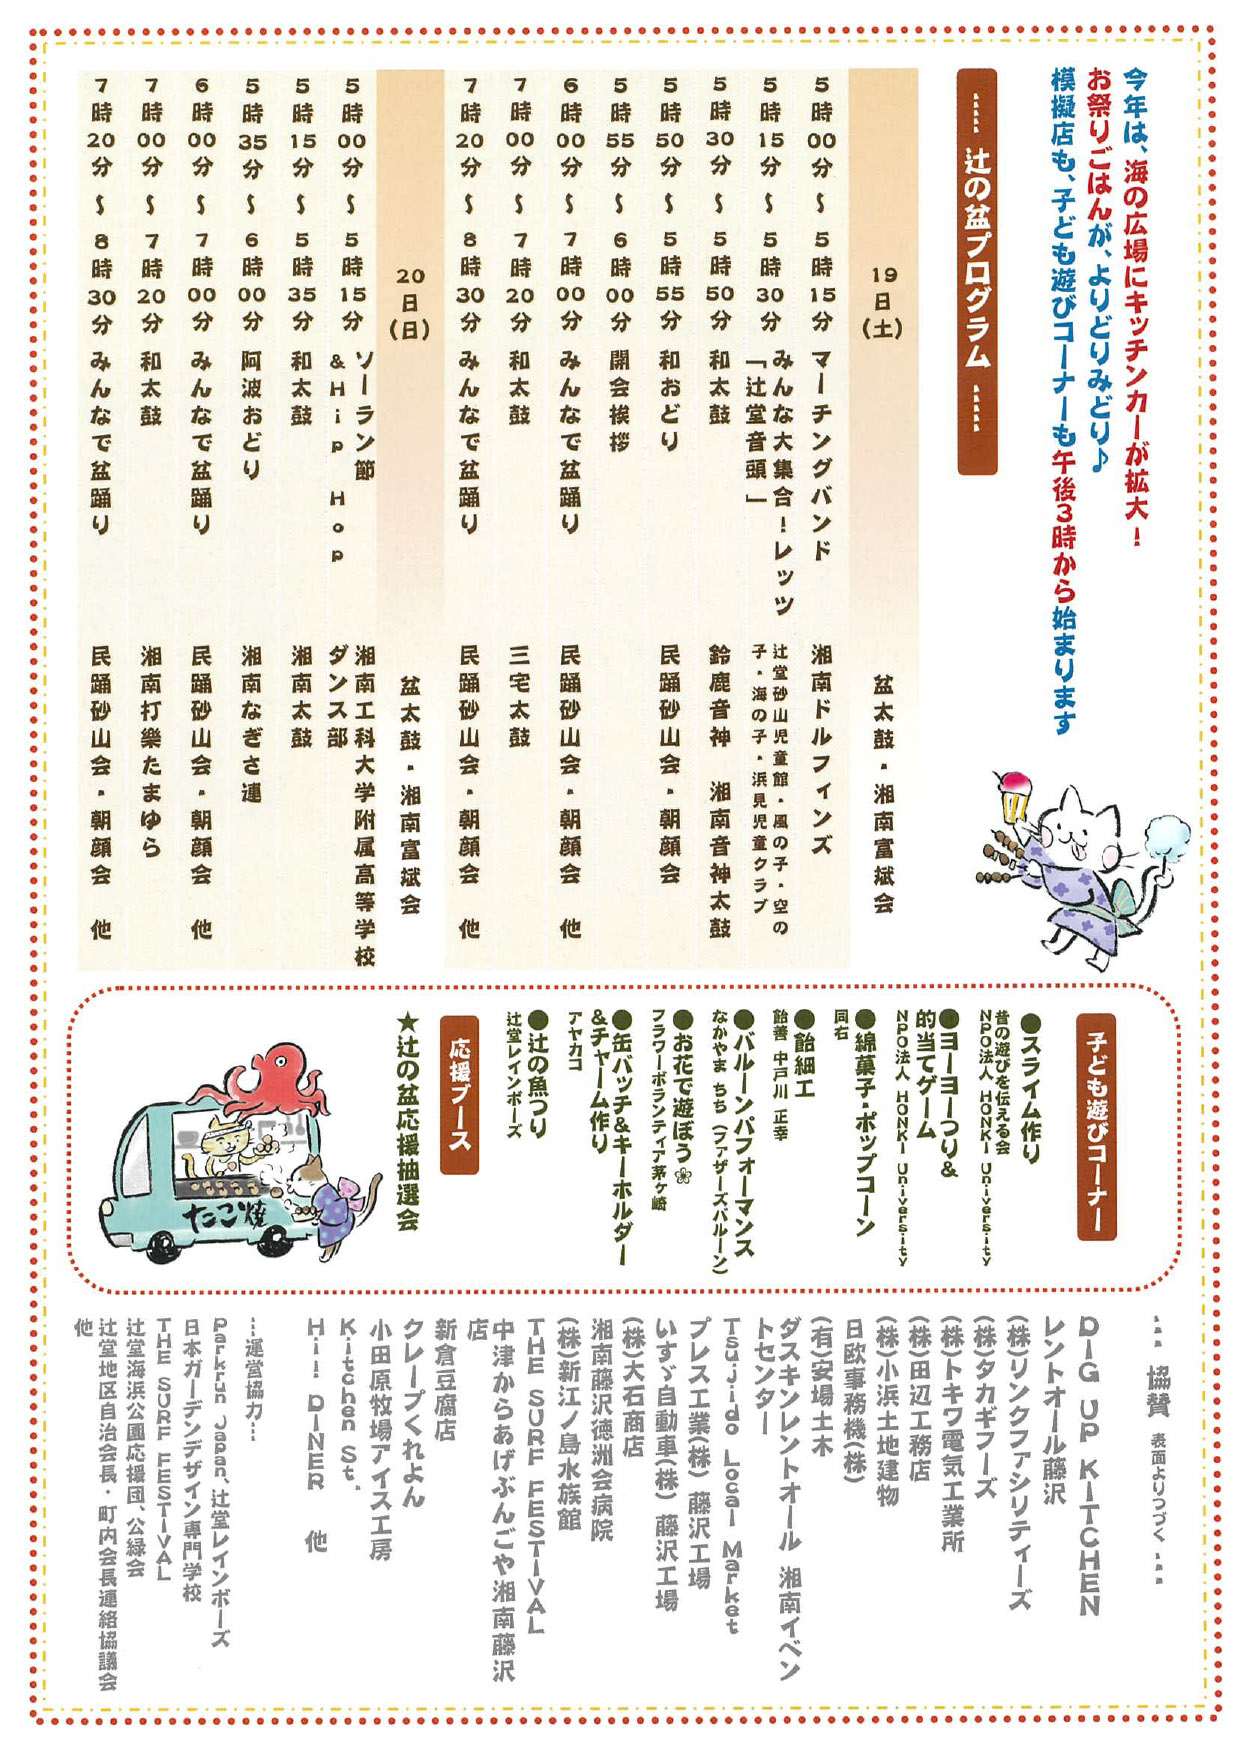 今年は、海の広場にキッチンカーが拡大!
お祭りごはんが、よりどりみどり♪
模擬店も、子ども遊びコーナーも午後3時から始まります
辻の盆プログラム
19日(土) 盆太鼓・湘南富斌会
5時00分~5時15分 マーチングバンド 湘南ドルフィンズ
5時15分~5時30分 みんな大集合!レッツ
「辻堂音頭」
辻堂砂山児童館・風の子・空の
子・海の子・浜見児童クラブ
5時30分~5時50分 和太鼓 鈴鹿音神 湘南音神太鼓
5時50分~5時55分 和おどり 民踊砂山会・朝顔会
5時55分~6時00分 開会挨拶
6時00分~7時00分 みんなで盆踊り 民踊砂山会・朝顔会 他
7時00分~7時20分 和太鼓 三宅太鼓
7時20分~8時30分 みんなで盆踊り 民踊砂山会・朝顔会 他
20日(日) 盆太鼓・湘南富斌会
5時00分~5時15分 ソーラン節
&Hip Hop
湘南工科大学附属高等学校
ダンス部
5時15分~5時35分 和太鼓 湘南太鼓
5時35分~6時00分 阿波おどり 湘南なぎさ連
6時00分~7時00分 みんなで盆踊り 民踊砂山会・朝顔会 他
7時00分~7時20分 和太鼓 湘南打樂たまゆら
7時20分~8時30分 みんなで盆踊り 民踊砂山会・朝顔会 他
子ども遊びコーナー
●スライム作り
昔の遊びを伝える会
NPO法人 HONKI University
●ヨーヨーつり&
的当てゲーム
NPO法人 HONKI University
●綿菓子・ポップコーン
同右
●飴細工
飴善 中戸川 正幸
●バルーンパフォーマンス
なかやま ちち (ファザーズバルーン)
●お花で遊ぼう
フラワーボランティア茅ヶ崎
●缶バッチ&キーホルダー
&チャーム作り
アヤカコ
●辻の魚つり
辻堂レインボーズ
応援ブース
★辻の盆応援抽選会
たこ焼
協賛 表面よりつづく
DIG UP KITCHEN
レントオール藤沢
(株)リンクファシリティーズ
(株)タカギフーズ
(株)トキワ電気工業所
(株)田辺工務店
(株)小浜土地建物
日欧事務機(株)
(有)安場土木
ダスキンレントオール 湘南イベン
トセンター
Tsujido Local Market
プレス工業(株) 藤沢工場
いすゞ自動車(株) 藤沢工場
(株)大石商店
湘南藤沢徳洲会病院
(株)新江ノ島水族館
THE SURF FESTIVAL
中津からあげぶんごや湘南藤沢
店
新倉豆腐店
クレープくれよん
小田原牧場アイス工房
Kitchen St.
Hill DINER 他
…運営協力…
parkrun Japan、辻堂レインボーズ
日本ガーデンデザイン専門学校
THE SURF FESTIVAL
辻堂海浜公園応援団、公緑会
辻堂地区自治会長・町内会長連絡協議会
他